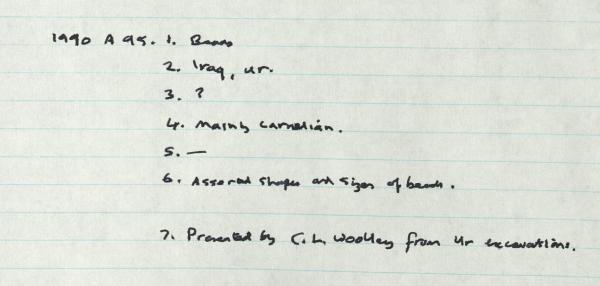 1990 A 95. 1. Beads
2. Iraq, Ur.
3. ?
4. Mainly carnelian.
5. —
6. Assorted shapes and sizes of beads.
7. Presented by C. L. Woolley from Ur excavations.